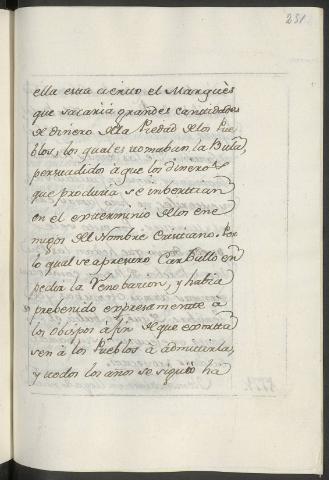 251
ella esta cierto el Marquès
que sacaria grandes cantidades
de dinero de la Piedad de los Pue
blos, los quales tomaban la Bula,
persuadidos à que los dineros
que producia se invertian
en el exterminio de los ene
migos del Nombre Cristiano. Por
lo qual se apresurò Carballo en
pedir la Renobacion, y habia
prebenido expresamente à
los Obispos à fin de que exorta
sen à los Pueblos à admitirla,
y todos los años se siguiò ha